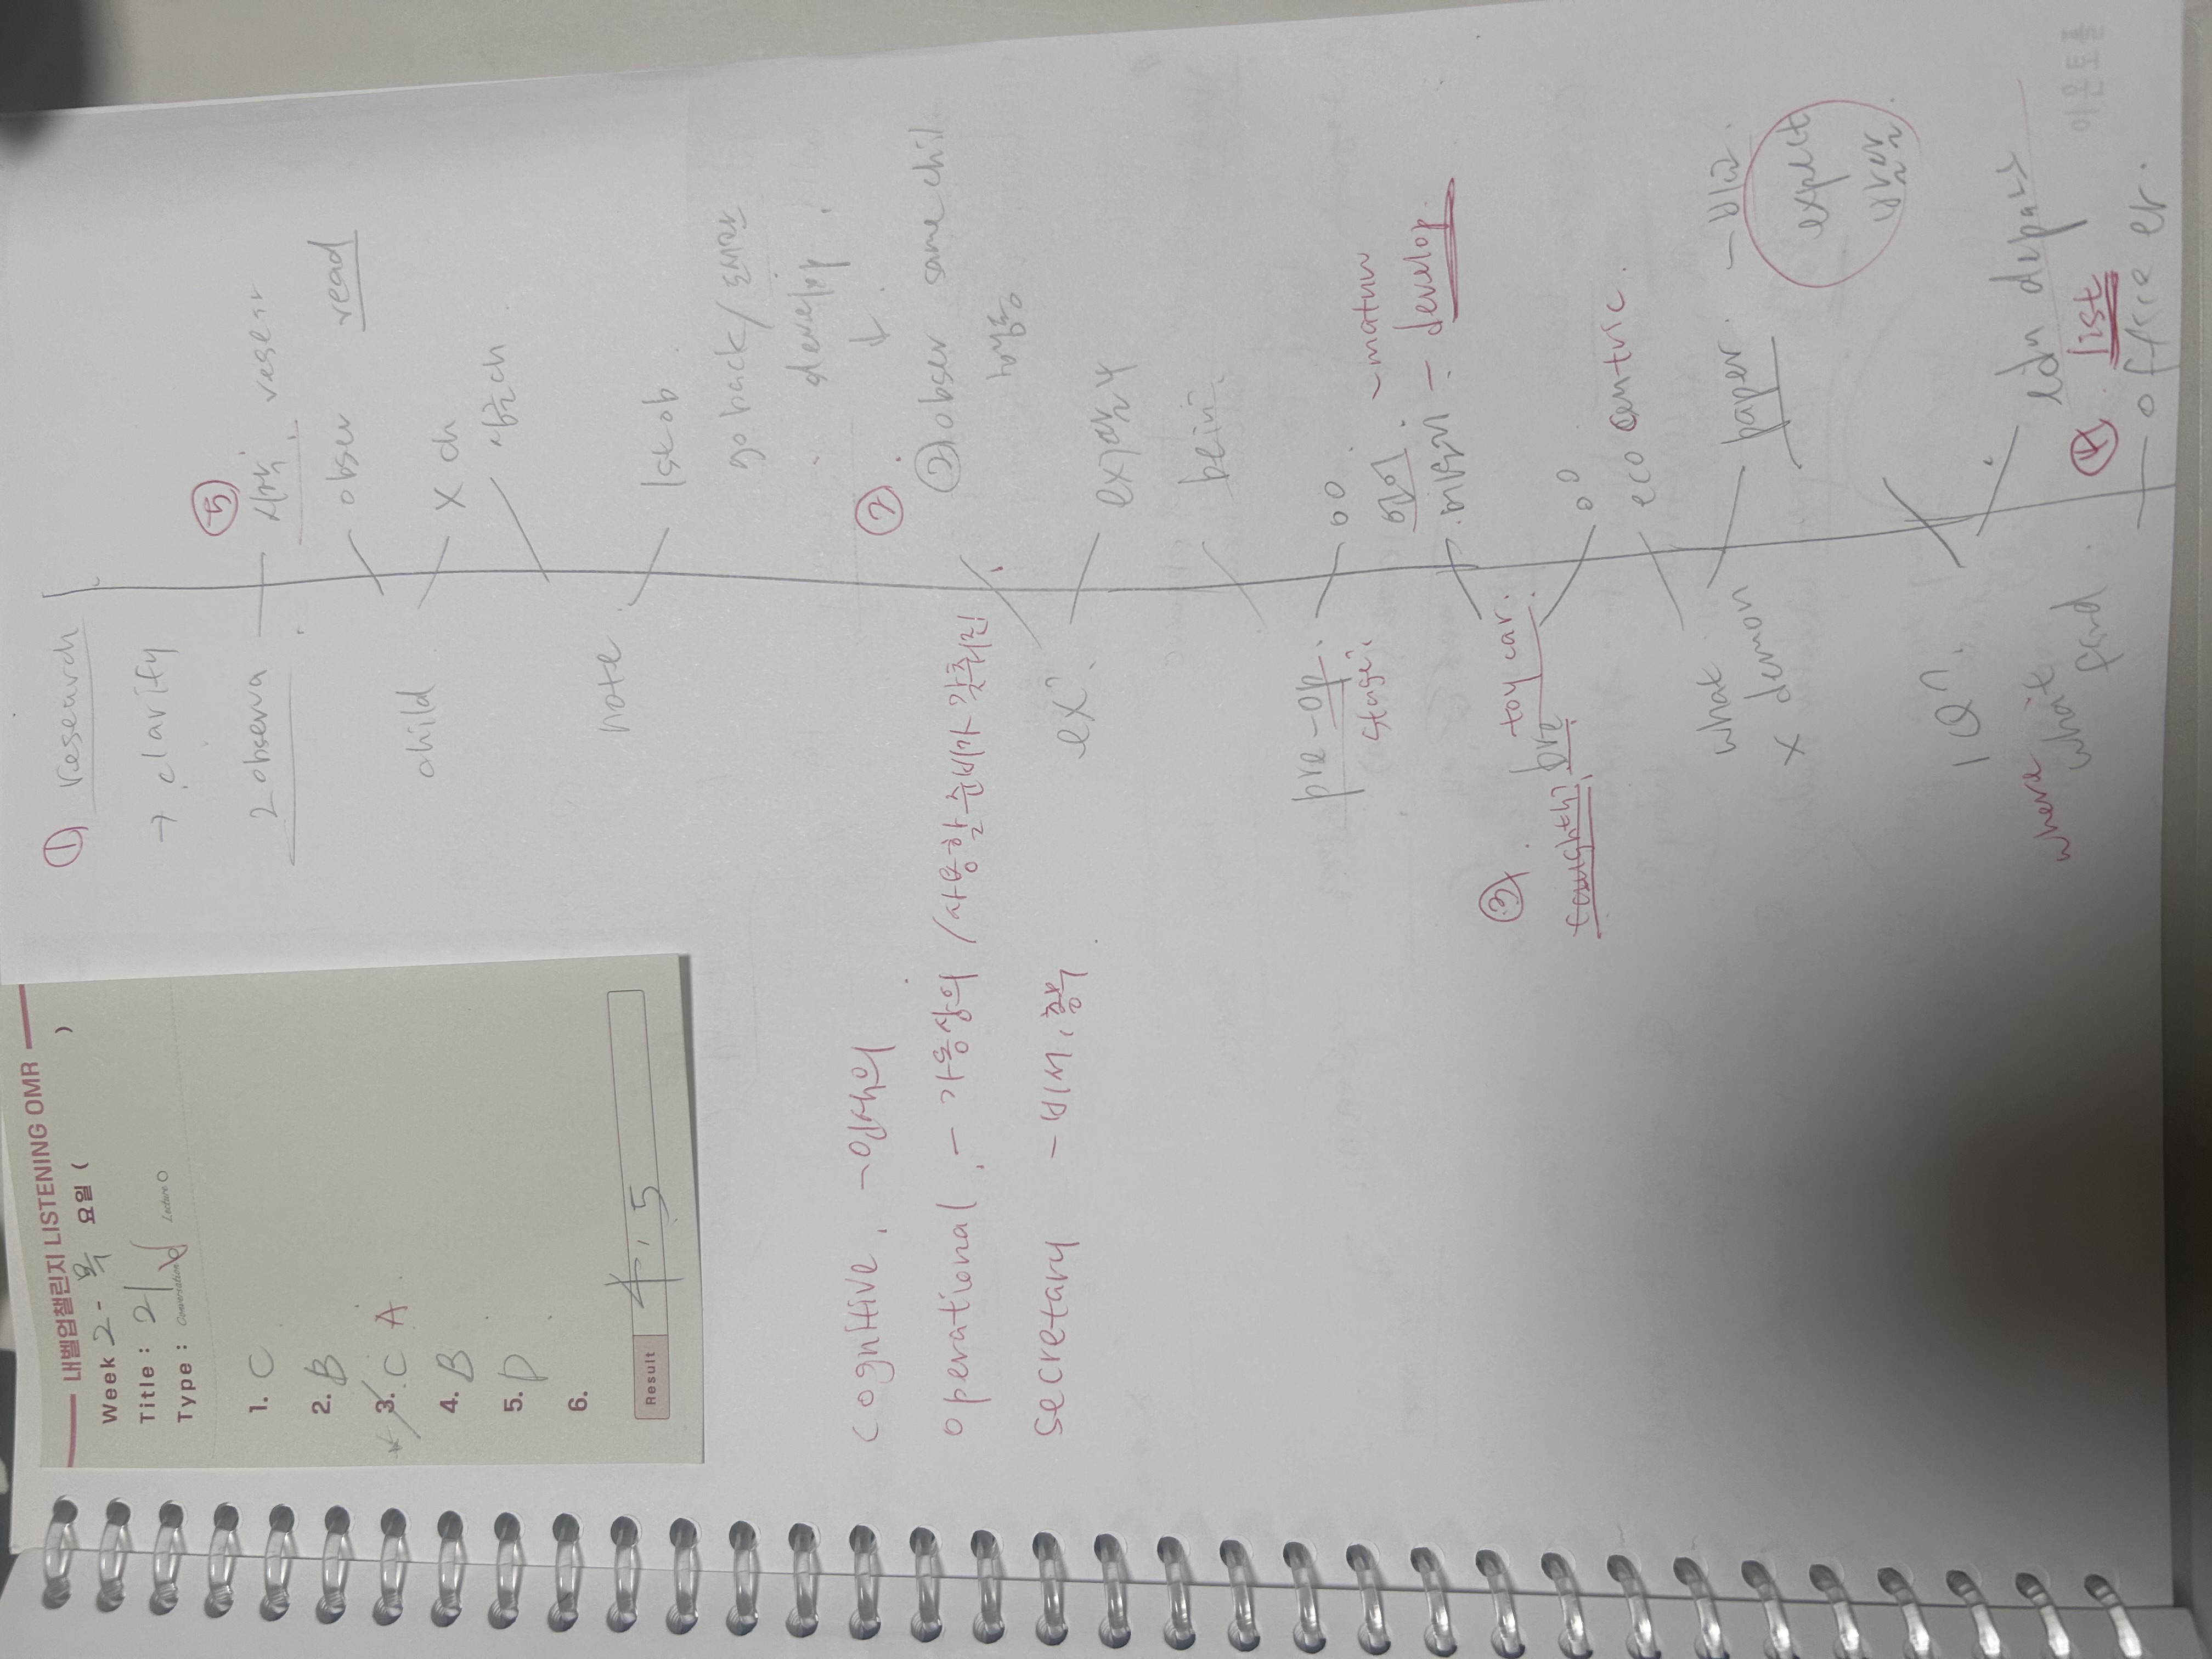 내벨업챌린지 LISTENING OMR
Week 2 - 목 요일 ( )
Title : 21
Type : Conversation Lecture
1. C
2. B
3. C A
4. B
5. D
6.
Result 4.5
cognitive. - 인식의
operational. - 가동상의 / 사용할 준비가 갖춰진
secretary - 비서, 총무
① research
→ clarify
2 observa
child
note
ex)
pre-op.
stage
③ toy car.
pre
what
x demon
1Q?
where what
find
⑤
obser read
x ch
1st ob
go back /
develop
②
② obser same chil
행동
ex)
- matur
언어
- develop
eco centric.
paper. - 비교
expect
edu depart
④ list
office er.